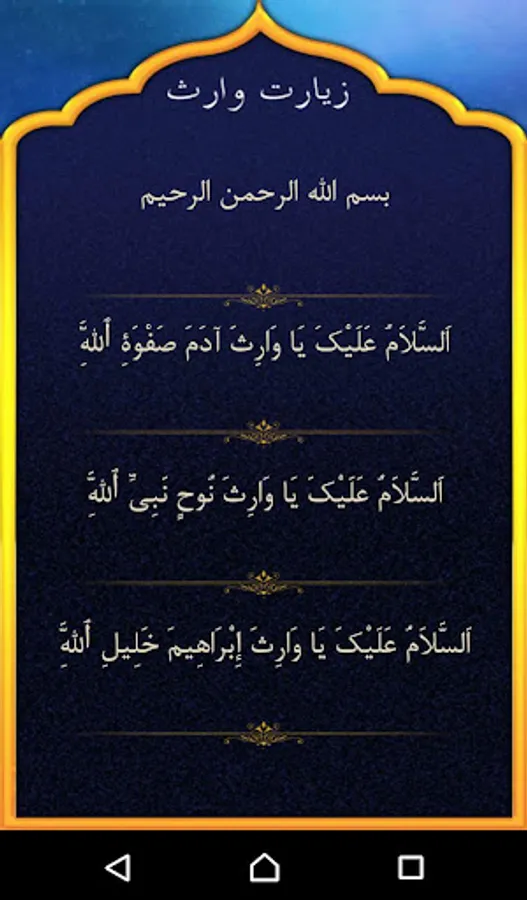 زیارت وارث
بسم الله الرحمن الرحیم
اَلسَّلاَمُ عَلَیْکَ یَا وَارِثَ آدَمَ صَفْوَةِ اَللَّهِ
اَلسَّلاَمُ عَلَیْکَ یَا وَارِثَ نُوحٍ نَبِیِّ اَللَّهِ
اَلسَّلاَمُ عَلَیْکَ یَا وَارِثَ إِبْرَاهِیمَ خَلِیلِ اَللَّهِ